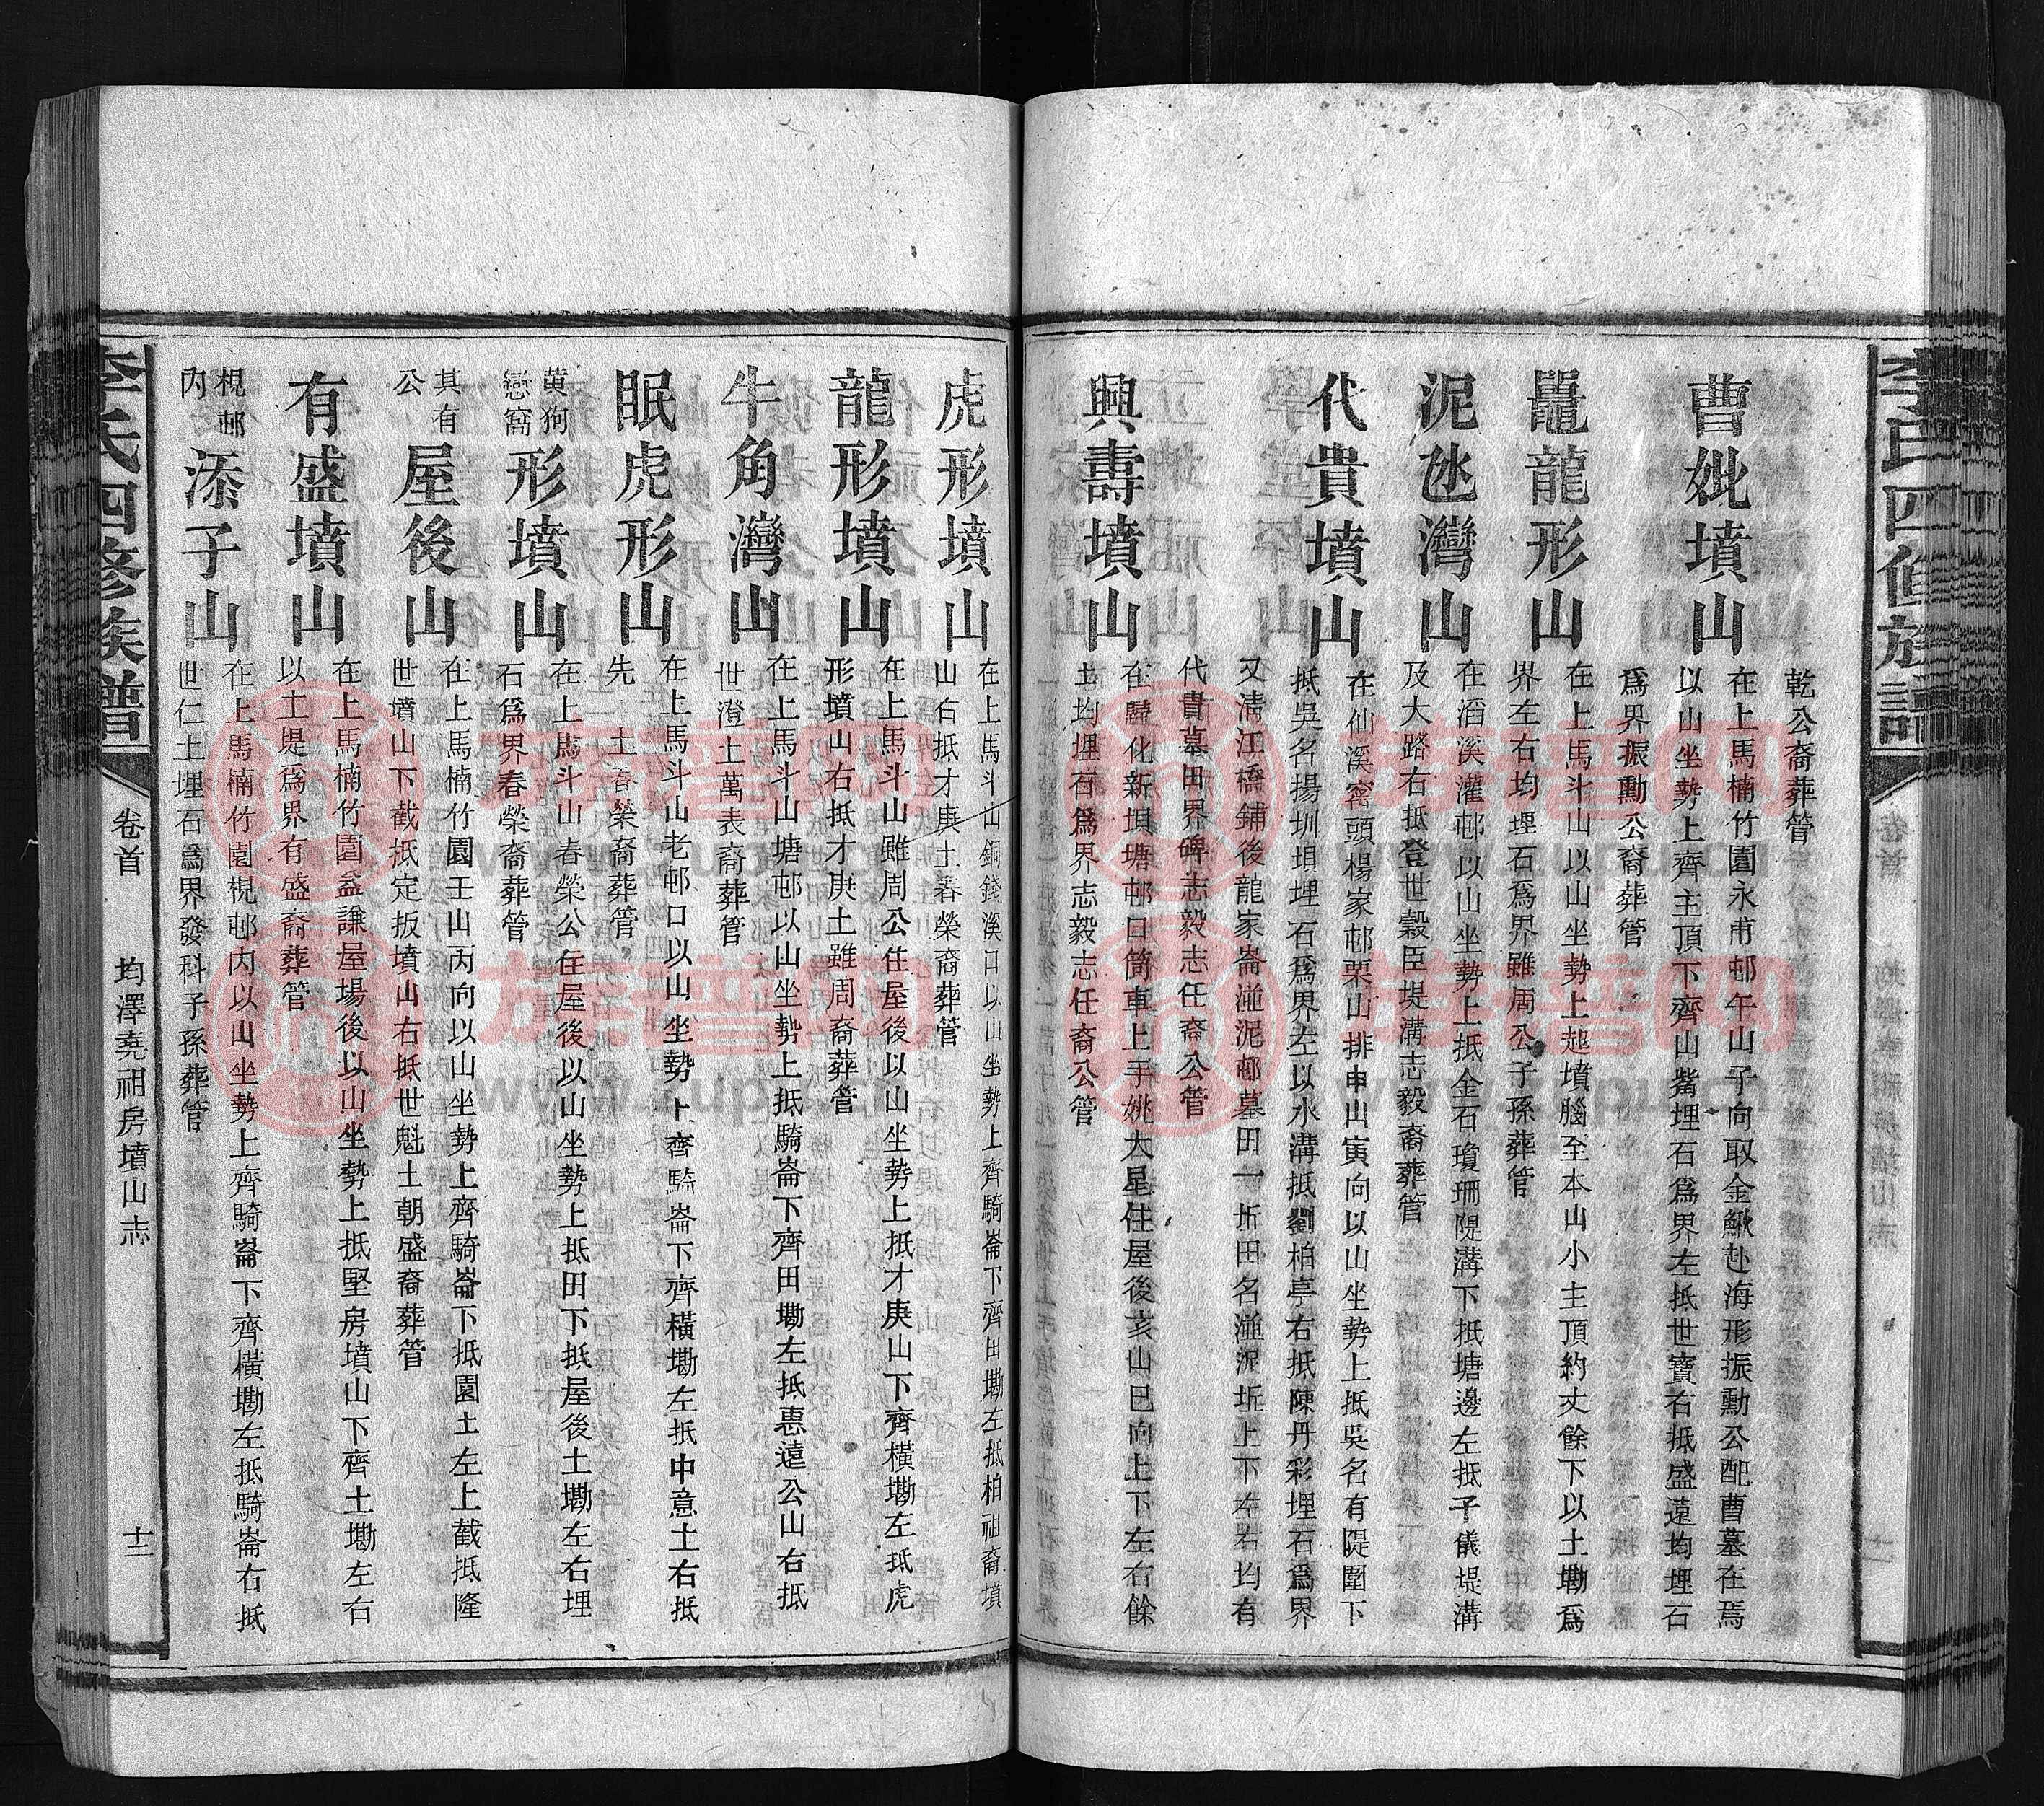 李氏四修族譜
乾公裔葬管
曹妣墳山
在上馬楠竹園永甫邨午山子向取金鰍赴海形振勳公配曹墓在焉
以山坐勢上齊主頂下齊山嘴埋石爲界左抵世寶右抵盛遠均埋石
爲界振勳公裔葬管
鼉龍形山
在上馬斗山以山坐勢上起墳腦至本山小主頂約丈餘下以土墈爲
界左右均埋石爲界雖周公子孫葬管
泥氹灣山
在滔溪灌邨以山坐勢上抵金石瓊珊隄溝下抵塘邊左抵子儀堤溝
及大路右抵登世穀臣堤溝志毅裔葬管
代貴墳山
在仙溪窰頭楊家邨栗山排申山寅向以山坐勢上抵吳名有隄圍下
抵吳名揚圳垻埋石爲界左以水溝抵劉柏亭右抵陳丹彩埋石爲界
又清江橋鋪後龍家崙湴泥邨墓田一坵田名湴泥坵上下左右均有
代貴墓田界碑志毅志任裔公管
興壽墳山
在歸化新垻塘邨口筒車上手姚大星住屋後亥山巳向上下左右餘
土均埋石爲界志毅志任裔公管
虎形墳山
在上馬斗山銅錢溪口以山坐勢上齊騎崙下齊田墈左抵柏祖裔墳
山右抵才庚土春榮裔葬管
龍形墳山
在上馬斗山雖周公住屋後以山坐勢上抵才庚山下齊橫墈左抵虎
形墳山右抵才庚土雖周裔葬管
牛角灣山
在上馬斗山塘邨以山坐勢上抵騎崙下齊田墈左抵惠遠公山右抵
世澄土萬表裔葬管
眠虎形山
在上馬斗山老邨口以山坐勢上齊騎崙下齊橫墈左抵中意土右抵
先 土春榮裔葬管
黃狗
戀窩
形墳山
在上馬斗山春榮公住屋後以山坐勢上抵田下抵屋後土墈左右埋
石爲界春榮裔葬管
其有
公
屋後山
在上馬楠竹園壬山丙向以山坐勢上齊騎崙下抵園土左上截抵隆
世墳山下截抵定扳墳山右抵世魁土朝盛裔葬管
有盛墳山
在上馬楠竹園益謙屋場後以山坐勢上抵堅房墳山下齊土墈左右
以土堤爲界有盛裔葬管
梘邨
內
添子山
在上馬楠竹園梘邨內以山坐勢上齊騎崙下齊橫墈左抵騎崙右抵
世仁土埋石爲界發科子孫葬管
李氏四修族譜
卷首
均澤堯祖房墳山志
十二
族譜网
www.zupu.cn